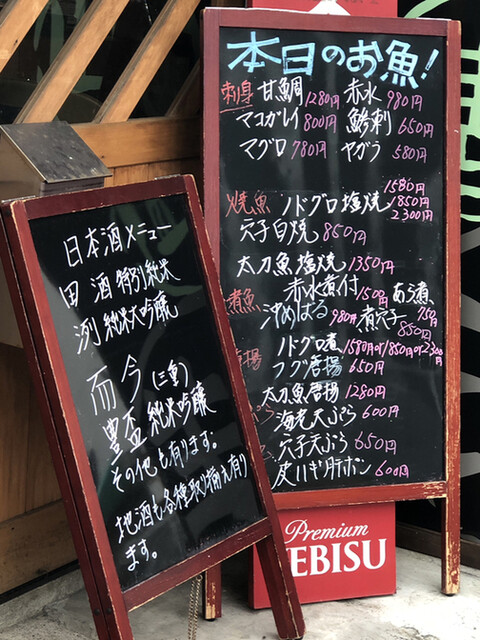 本日のお魚!
刺身 甘鯛 1280円 赤水 980円
マコガレイ 800円 鯵刺 650円
マグロ 780円 ヤガラ 580円
1580円
焼魚 ノドグロ塩焼 1850円
2300円
穴子白焼 850円
太刀魚塩焼 1350円
煮魚 赤水煮付 1500円 あら煮 750円
沖めばる 980円 煮穴子 850円
ノドグロ煮 1580円or1850or2300円
唐揚 フグ唐揚 650円
太刀魚唐揚 1280円
海老天ぷら 600円
穴子天ぷら 650円
皮ハギ肝ポン 600円
日本酒メニュー
田酒 特別純米
洌 純米大吟醸
而今(三重)
豊盃 純米吟醸
その他も有ります。
地酒も各種取り揃え有り
ます。
Premium
EBISU